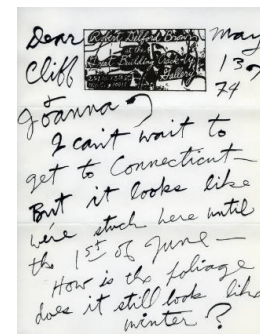 Dear
Robert Delford Brown
at the
Great Building Crack-Up
Gallery
May
Cliff
13,
74
+
Joanna,
I can't wait to
get to Connecticut—
But it looks like
we're stuck here until
the 1st of June—
How is the foliage
does it still look like
winter?